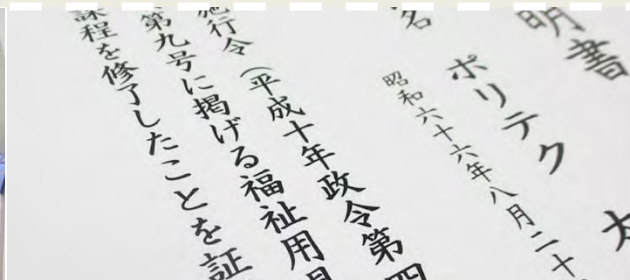 明書
名 ポリテク 太
昭和六十六年八月二十
施行令（平成十年政令第四
第九号に掲げる福祉用具
課程を修了したことを証